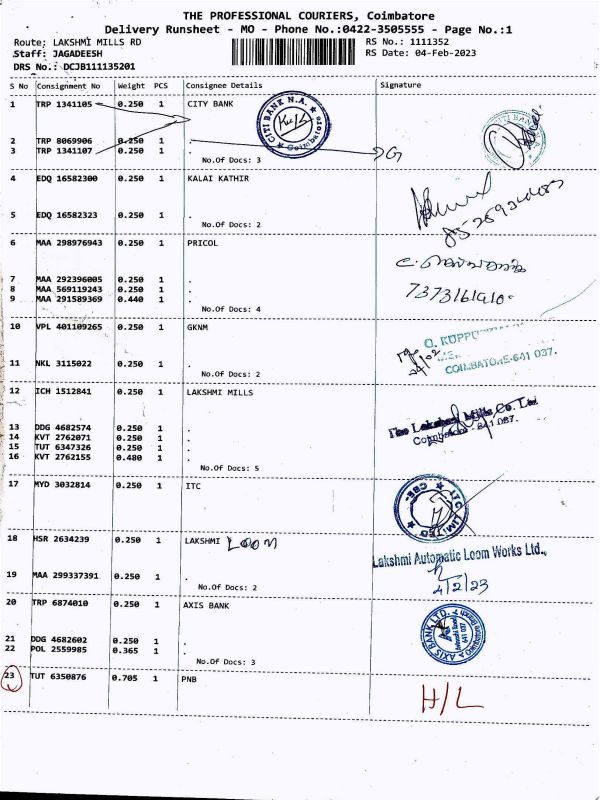 THE PROFESSIONAL COURIERS, Coimbatore
Delivery Runsheet - MO - Phone No.:0422-3505555 - Page No.:1
Route: LAKSHMI MILLS RD RS No.: 1111352
Staff: JAGADEESH RS Date: 04-Feb-2023
DRS No.: DCJB111135201
S No Consignment No Weight PCS Consignee Details Signature
1 TRP 1341105 0.250 1 CITY BANK
CITI BANK N.A. Coimbatore
CITI BANK
2 TRP 8069906 0.250 1 .
3 TRP 1341107 0.250 1 .
No.Of Docs: 3
4 EDQ 16582300 0.250 1 KALAI KATHIR
5 EDQ 16582323 0.250 1 .
No.Of Docs: 2
6 MAA 298976943 0.250 1 PRICOL
7 MAA 292396005 0.250 1 .
8 MAA 569119243 0.250 1 .
9 MAA 291589369 0.440 1 .
No.Of Docs: 4
10 VPL 401109265 0.250 1 GKNM
COIMBATORE-641 037.
11 NKL 3115022 0.250 1 .
No.Of Docs: 2
12 ICH 1512841 0.250 1 LAKSHMI MILLS
The Lakshmi Mills Co. Ltd
Coimbatore - 641 037.
13 DDG 4682574 0.250 1 .
14 KVT 2762071 0.250 1 .
15 TUT 6347326 0.250 1 .
16 KVT 2762155 0.480 1 .
No.Of Docs: 5
17 MYD 3032814 0.250 1 ITC
ITC LIMITED CBE
18 HSR 2634239 0.250 1 LAKSHMI LOOM
Lakshmi Automatic Loom Works Ltd.,
4/2/23
19 MAA 299337391 0.250 1 .
No.Of Docs: 2
20 TRP 6874010 0.250 1 AXIS BANK
AXIS BANK LTD.
641 037
21 DDG 4682602 0.250 1 .
22 POL 2559985 0.365 1 .
No.Of Docs: 3
23 TUT 6350876 0.705 1 PNB
H/L